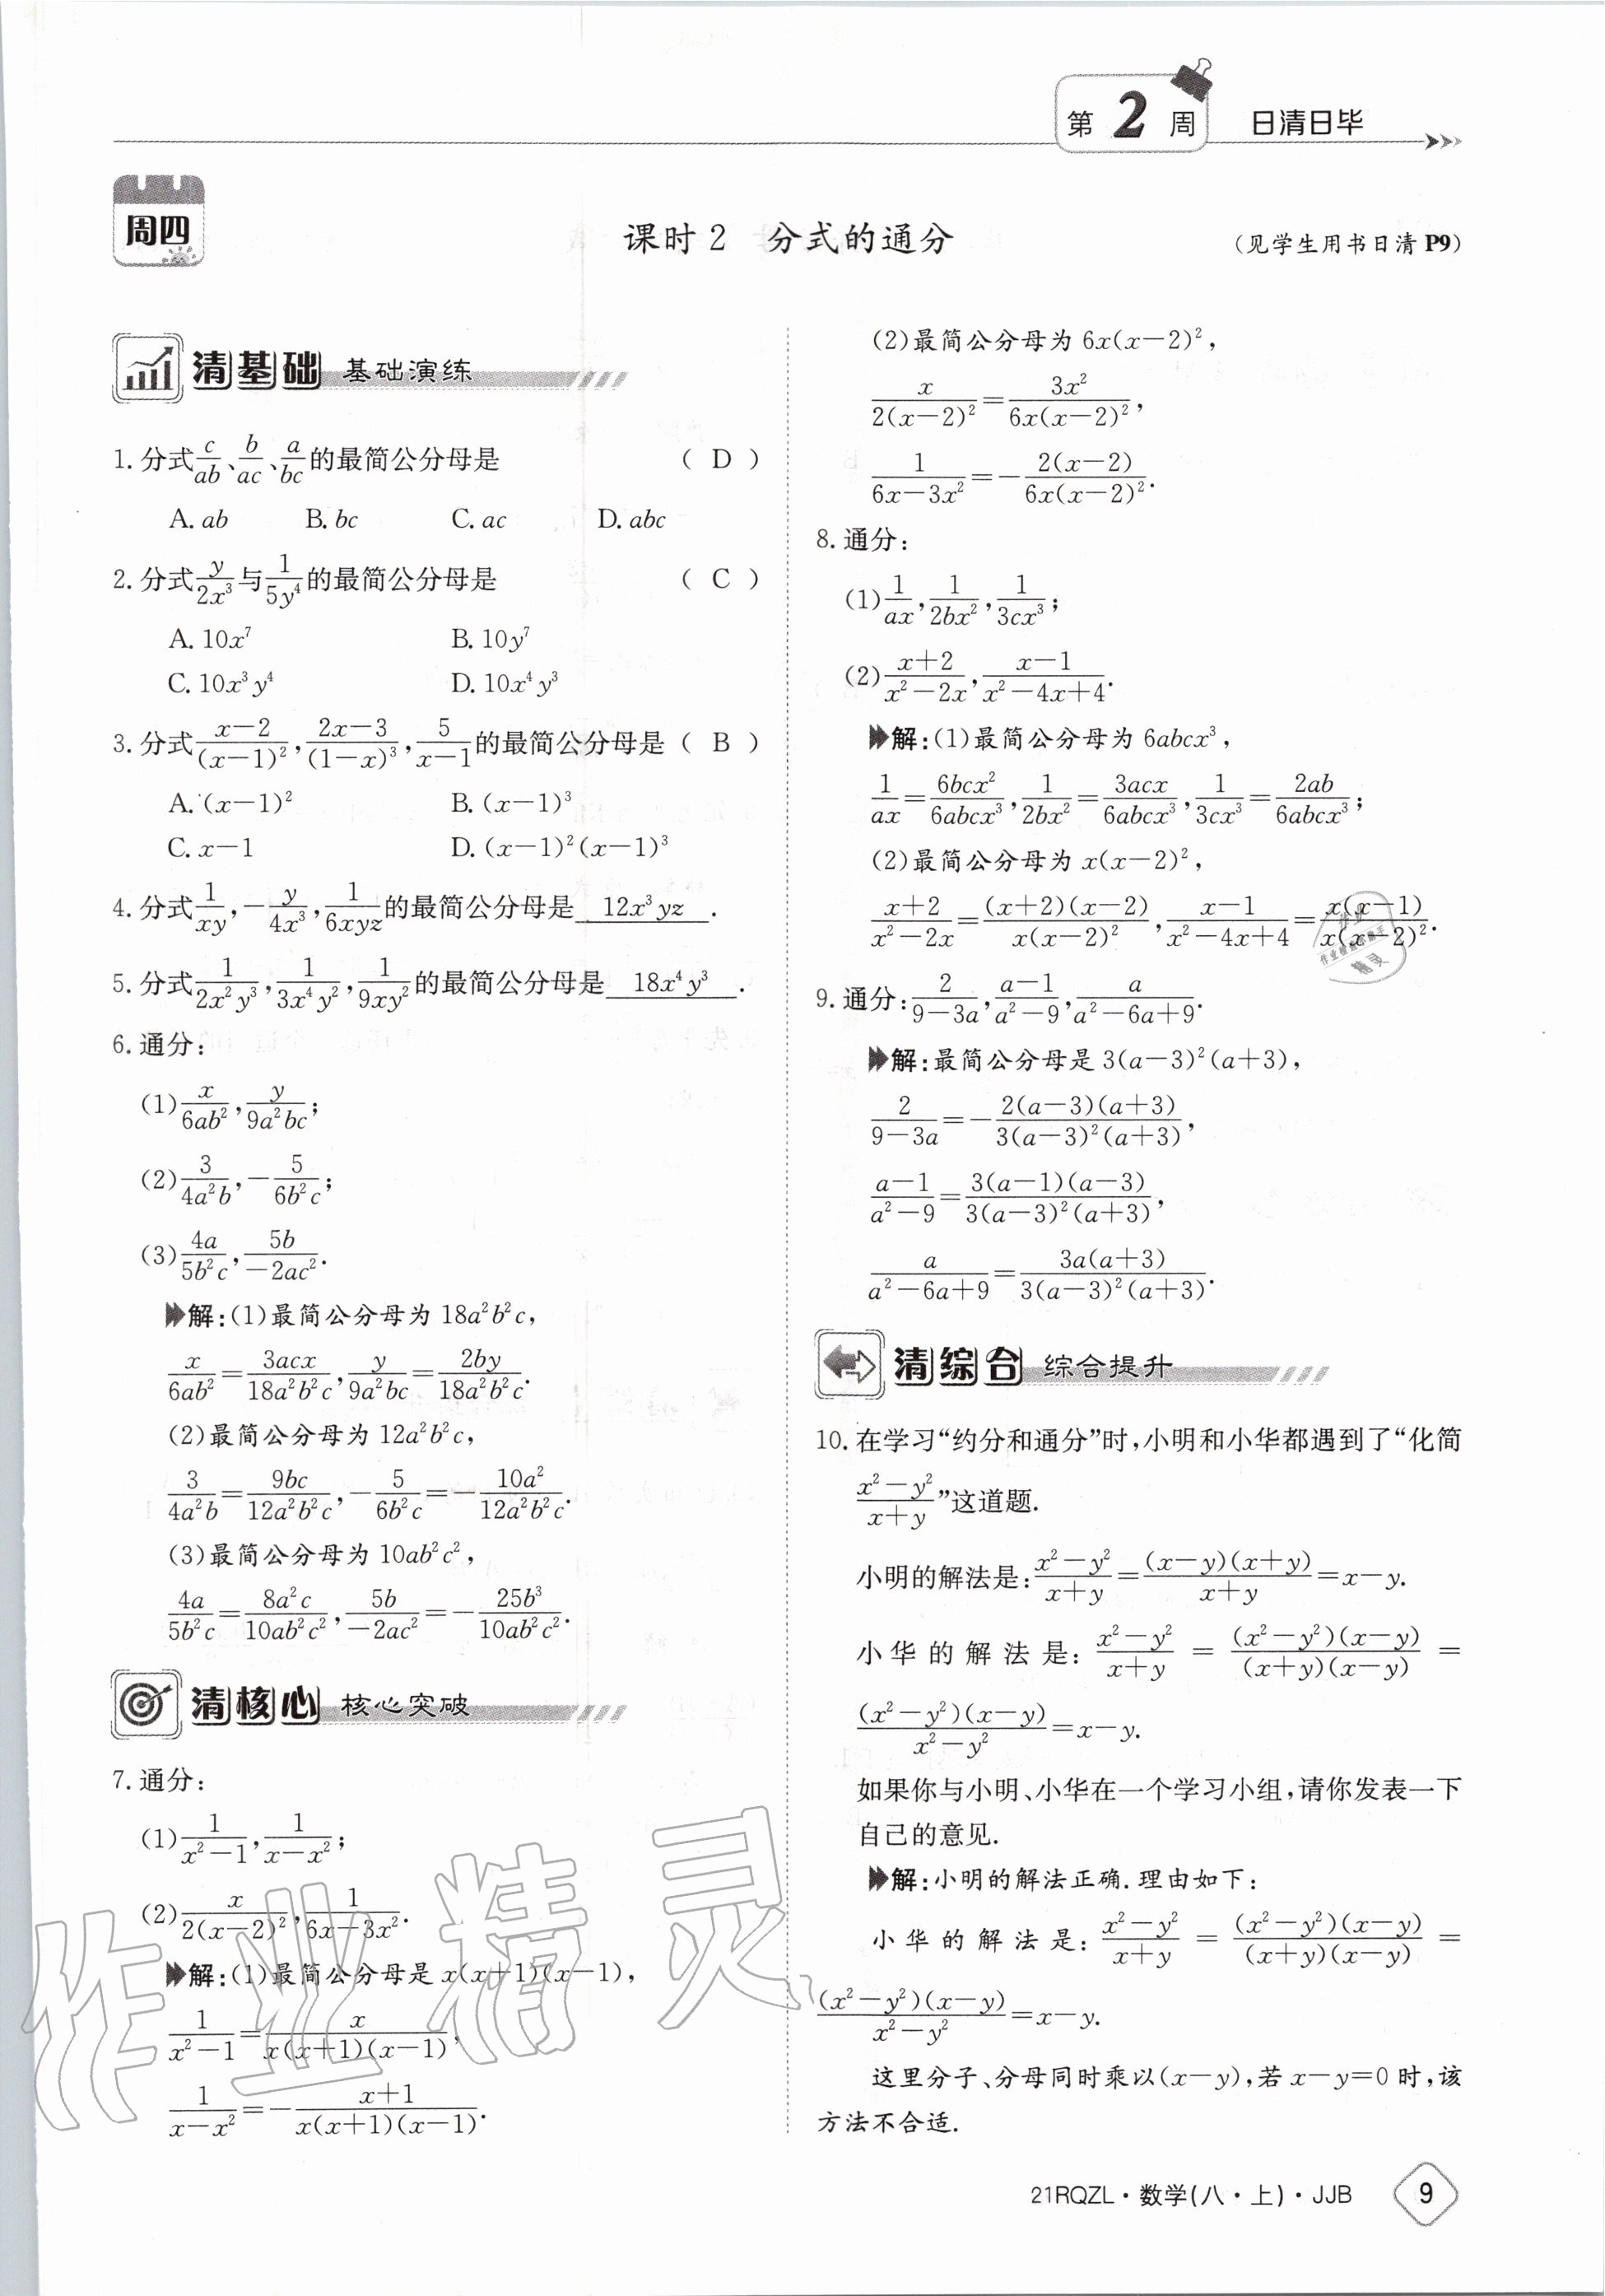 第 2 周 日清日毕
周四
课时 2 分式的通分 (见学生用书日清 P9)
清基础 基础演练
1. 分式 c/ab、b/ac、a/bc 的最简公分母是 ( D )
A. ab B. bc C. ac D. abc
2. 分式 y/2x³ 与 1/5y⁴ 的最简公分母是 ( C )
A. 10x⁷ B. 10y⁷
C. 10x³y⁴ D. 10x⁴y³
3. 分式 (x−2)/(x−1)², (2x−3)/(1−x)³, 5/(x−1) 的最简公分母是 ( B )
A. (x−1)² B. (x−1)³
C. x−1 D. (x−1)²(x−1)³
4. 分式 1/xy, −y/4x³, 1/6xyz 的最简公分母是 12x³yz .
5. 分式 1/2x²y³, 1/3x⁴y², 1/9xy² 的最简公分母是 18x⁴y³ .
6. 通分:
(1) x/6ab², y/9a²bc;
(2) 3/4a²b, −5/6b²c;
(3) 4a/5b²c, 5b/−2ac².
解:(1)最简公分母为 18a²b²c,
x/6ab² = 3acx/18a²b²c, y/9a²bc = 2by/18a²b²c.
(2)最简公分母为 12a²b²c,
3/4a²b = 9bc/12a²b²c, −5/6b²c = −10a²/12a²b²c.
(3)最简公分母为 10ab²c²,
4a/5b²c = 8a²c/10ab²c², 5b/−2ac² = −25b³/10ab²c².
清核心 核心突破
7. 通分:
(1) 1/(x²−1), 1/(x−x²);
(2) x/2(x−2)², 1/(6x−3x²).
解:(1)最简公分母是 x(x+1)(x−1),
1/(x²−1) = x/x(x+1)(x−1),
1/(x−x²) = −(x+1)/x(x+1)(x−1).
(2)最简公分母为 6x(x−2)²,
x/2(x−2)² = 3x²/6x(x−2)²,
1/(6x−3x²) = −2(x−2)/6x(x−2)².
8. 通分:
(1) 1/ax, 1/2bx², 1/3cx³;
(2) (x+2)/(x²−2x), (x−1)/(x²−4x+4).
解:(1)最简公分母为 6abcx³,
1/ax = 6bcx²/6abcx³, 1/2bx² = 3acx/6abcx³, 1/3cx³ = 2ab/6abcx³;
(2)最简公分母为 x(x−2)²,
(x+2)/(x²−2x) = (x+2)(x−2)/x(x−2)², (x−1)/(x²−4x+4) = x(x−1)/x(x−2)².
9. 通分: 2/(9−3a), (a−1)/(a²−9), a/(a²−6a+9).
解:最简公分母是 3(a−3)²(a+3),
2/(9−3a) = −2(a−3)(a+3)/3(a−3)²(a+3),
(a−1)/(a²−9) = 3(a−1)(a−3)/3(a−3)²(a+3),
a/(a²−6a+9) = 3a(a+3)/3(a−3)²(a+3).
清综合 综合提升
10. 在学习“约分和通分”时,小明和小华都遇到了“化简
(x²−y²)/(x+y)”这道题.
小明的解法是: (x²−y²)/(x+y) = (x−y)(x+y)/(x+y) = x−y.
小华的解法是: (x²−y²)/(x+y) = (x²−y²)(x−y)/(x+y)(x−y) =
(x²−y²)(x−y)/(x²−y²) = x−y.
如果你与小明、小华在一个学习小组,请你发表一下
自己的意见.
解:小明的解法正确.理由如下:
小华的解法是: (x²−y²)/(x+y) = (x²−y²)(x−y)/(x+y)(x−y) =
(x²−y²)(x−y)/(x²−y²) = x−y.
这里分子、分母同时乘以(x−y),若 x−y=0 时,该
方法不合适.
作业精灵
21RQZL·数学(八·上)·JJB 9